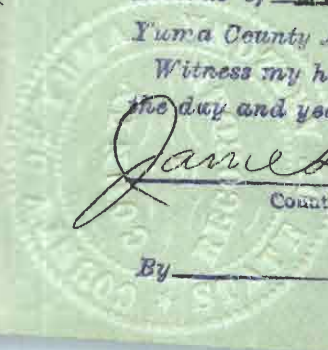 Yuma County
Witness my h
the day and yea
James
Count
By